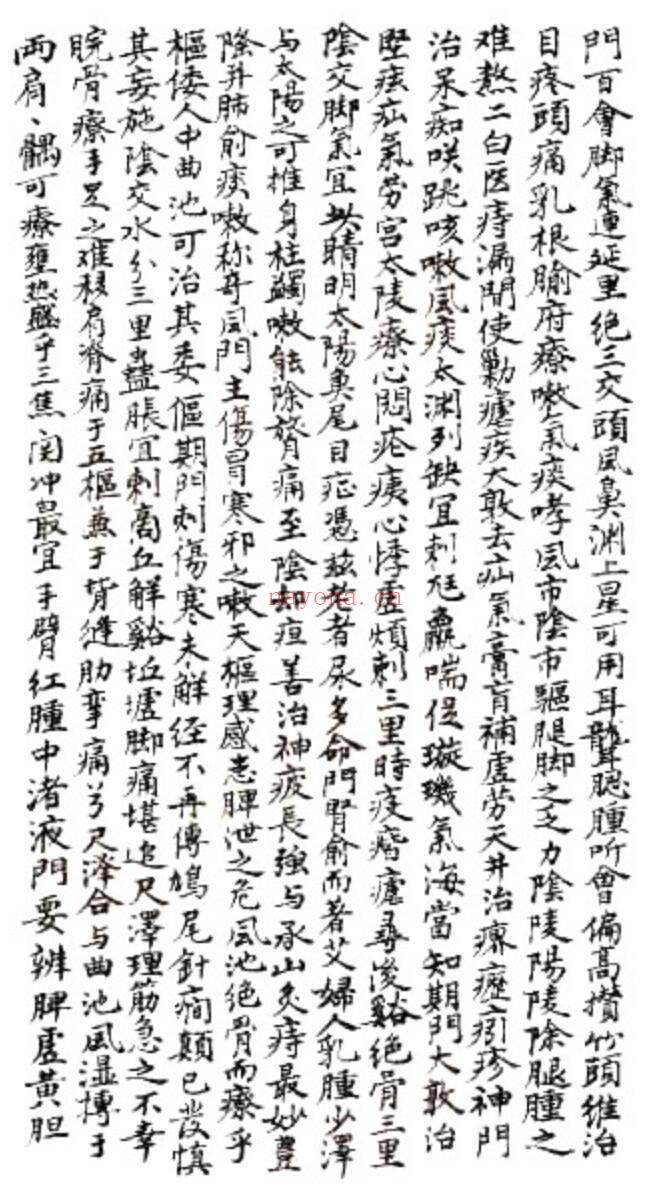 門百會脚氣連延里絶三交頭風鼻渊上星可用耳聾聴腫听會偏高攅竹頭維治
目疼頭痛乳根腧府療嗽氣痰哮風市陰市驅腿脚之乏力陰陵陽陵除腿腫之
难熬二白医痔漏間使剿瘧疾大敦去疝氣膏肓補虚劳天井治瘰癧瘾疹神門
治呆痴咲跳咳嗽風痰太渊列缺宜刺尪羸喘促璇璣氣海當知期門大敦治
堅痃疝氣劳宫太陵療心悶疮痍心悸虚煩刺三里時疫痎瘧尋後谿絶骨三里
陰交脚氣宜此睛明太陽魚尾目症憑兹老者尿多命門腎俞而著艾婦人乳腫少澤
与太陽之可推身柱蠲嗽能除膂痛至陰却疸善治神疲長強与承山灸痔最妙豊
隆并肺俞痰嗽称奇風門主傷冒寒邪之嗽天樞理感患脾泄之危風池絶骨而療乎
樞倭人中曲池可治其委傴期門刺傷寒未解经不再傳鳩尾針癇顛已發慎
其妄施陰交水分三里蠱脹宜刺商丘解谿坵墟脚痛堪追尺澤理筋急之不幸
腕骨療手足之难移肩脊痛于五樞兼于背縫肋挛痛兮尺泽合与曲池風湿搏于
両肩、髃可療壅热盛乎三焦関冲最宜手臂红腫中渚液門要辨脾虚黄胆
nayona.cn